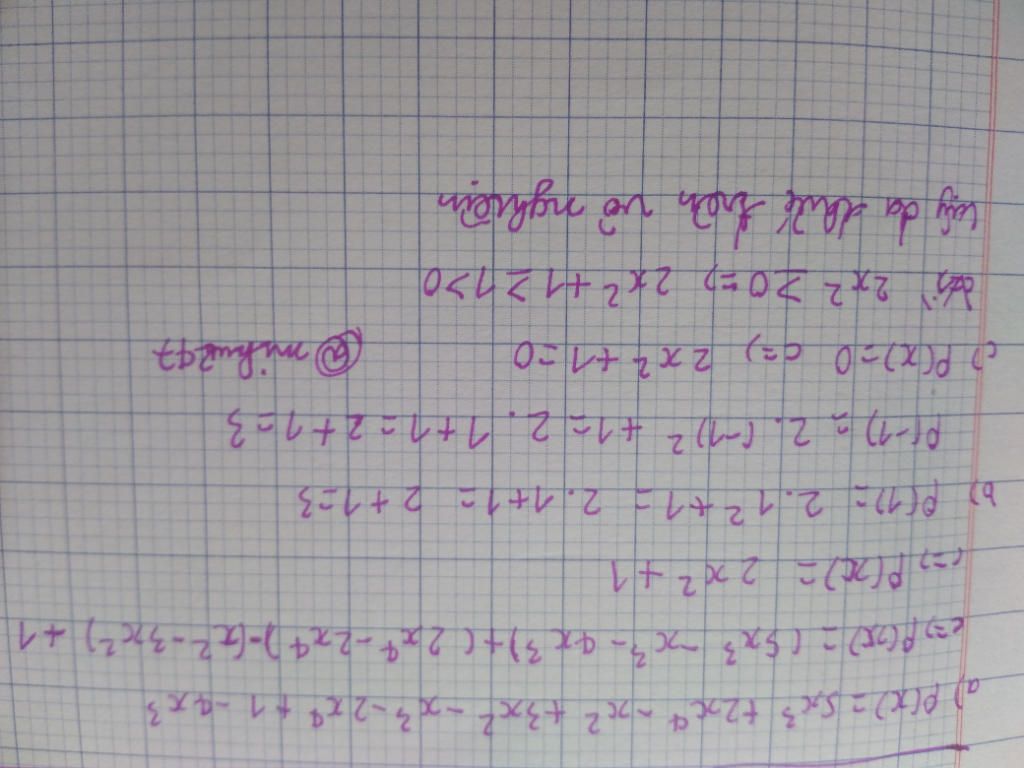 a) P(x) = 5x³ + 2x⁴ - x² + 3x² - x³ - 2x⁴ + 1 - 4x³
<=> P(x) = (5x³ - x³ - 4x³) + (2x⁴ - 2x⁴) - (x² - 3x²) + 1
<=> P(x) = 2x² + 1
b) P(1) = 2.1² + 1 = 2.1 + 1 = 2 + 1 = 3
P(-1) = 2.(-1)² + 1 = 2.1 + 1 = 2 + 1 = 3
c) P(x) = 0 <=> 2x² + 1 = 0
2x² ≥ 0 => 2x² + 1 ≥ 1 > 0
Vậy đa thức trên vô nghiệm